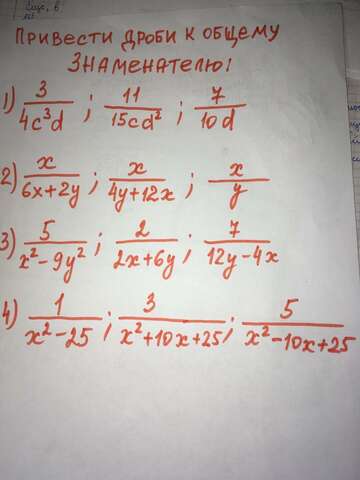 Привести дроби к общему
знаменателю:
1) 3/(4c³d) ; 11/(15cd²) ; 7/(10d)
2) x/(6x+2y) ; x/(4y+12x) ; x/y
3) 5/(x²-9y²) ; 2/(2x+6y) ; 7/(12y-4x)
4) 1/(x²-25) ; 3/(x²+10x+25) ; 5/(x²-10x+25)